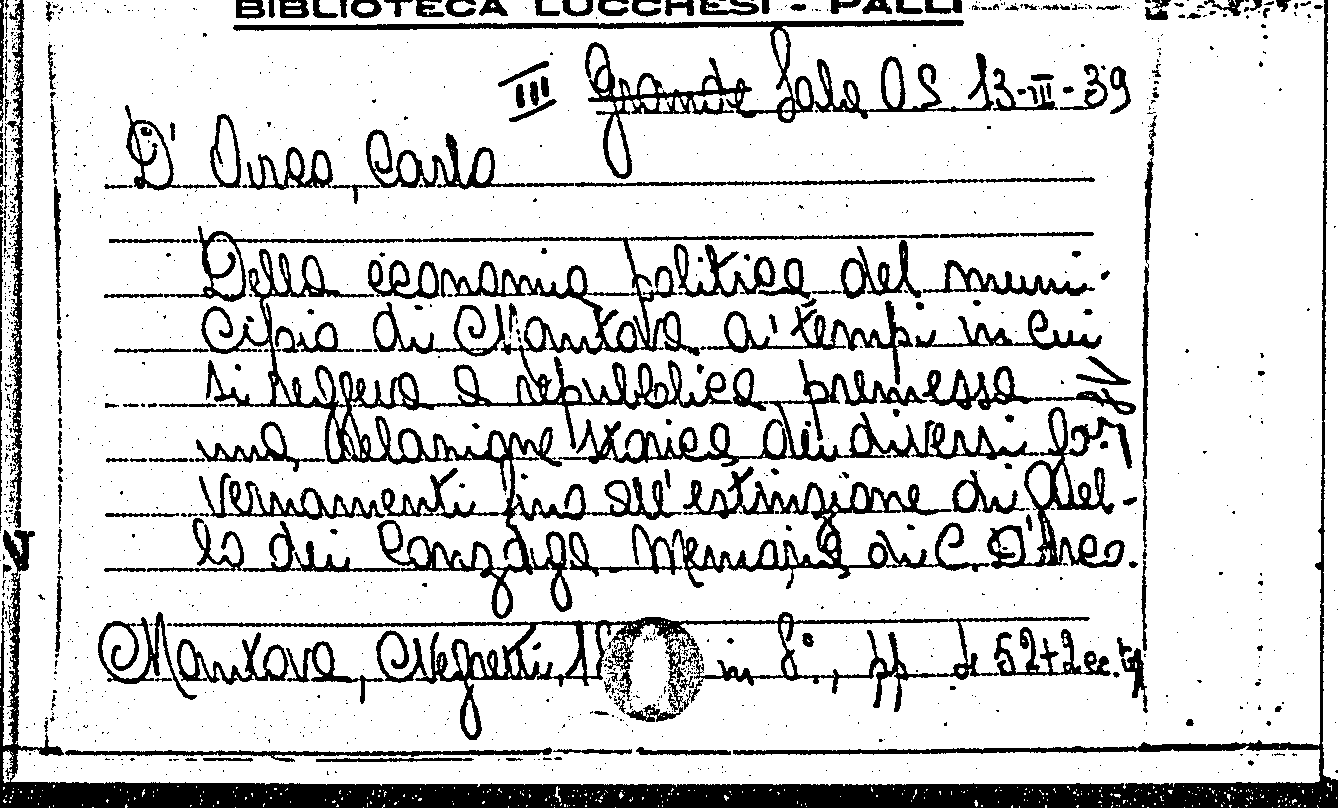 BIBLIOTECA LUCCHESI - PALLI
III Grande Sala OS 13-III-39
D' Arco, Carlo
Della economia politica del muni-
cipio di Mantova a' tempi in cui
si reggeva a repubblica premessa
una relazione storica dei diversi go-
vernamenti fino all'estinzione di quel-
lo dei Gonzaga. Memorie di C. D'Arco.
Mantova, Negretti, 18 in 8°, pp. 52+2